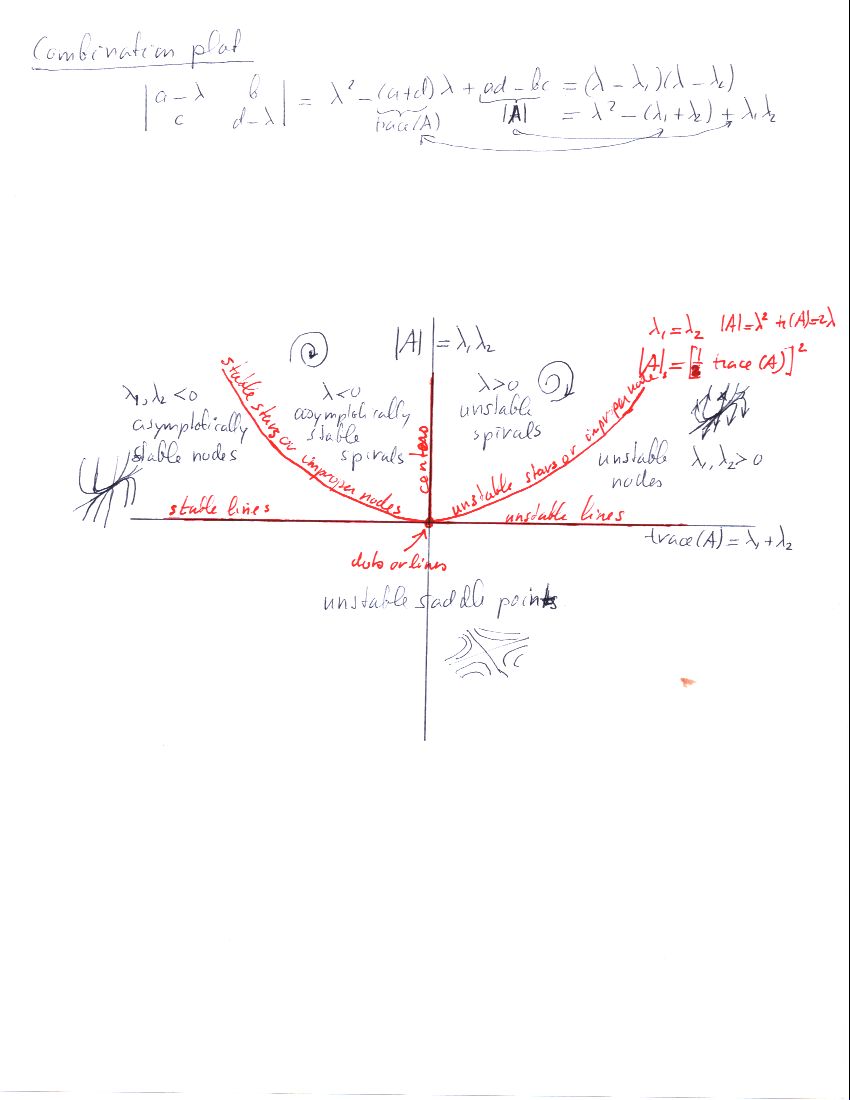 Combination plot
| a-λ b | = λ² - (a+d)λ + ad - bc = (λ - λ₁)(λ - λ₂)
| c d-λ | trace(A) |A| = λ² - (λ₁ + λ₂) + λ₁λ₂
|A| = λ₁λ₂
λ₁ = λ₂ |A| = λ² tr(A) = 2λ
|A| = [½ trace(A)]²
λ₁, λ₂ < 0
asymptotically
stable nodes
stable stars or improper nodes
λ<0
asymptotically
stable
spirals
centers
λ>0
unstable
spirals
unstable stars or improper nodes
unstable λ₁, λ₂ > 0
nodes
stable lines
unstable lines
trace(A) = λ₁ + λ₂
dots or lines
unstable saddle points